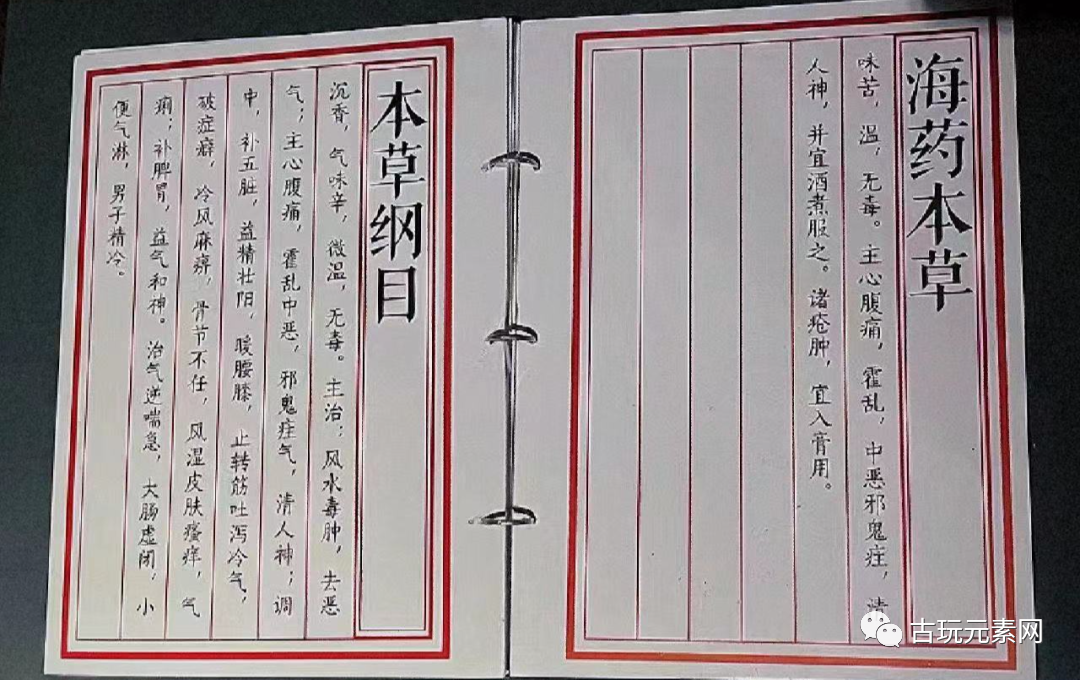 海药本草
味苦，温，无毒。主心腹痛，霍乱，中恶邪鬼疰，清
人神，并宜酒煮服之。诸疮肿，宜入膏用。
本草纲目
沉香，气味辛，微温，无毒。主治：风水毒肿，去恶
气；主心腹痛，霍乱中恶，邪鬼疰气，清人神；调
中，补五脏，益精壮阳，暖腰膝，止转筋吐泻冷气，
破症癖，冷风麻痹，骨节不任，风湿皮肤瘙痒，气
痢；补脾胃，益气和神。治气逆喘急，大肠虚闭，小
便气淋，男子精冷。
古玩元素网